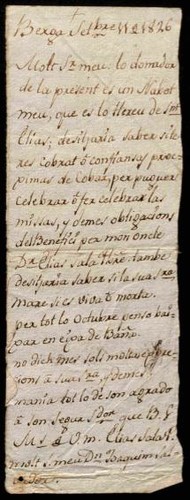 Berga Setbre 11 a 1826
Molt Sr meu: lo donador
de la present es un Nabot
meu, que es lo Hereu de Snt
Elias; desitjaria saber si te
res cobrat ó confiansas pro
pimas de Cobrar, per puguer
celebrar ó fer celebrar las
missas, y demes obligacions
del Benefici per mon oncle
Dr Elias Sala. Altre també
desitjaria saber si la sua Sra
mare si es viva ó morta.
per tot lo Octubre penso
par en eixa de
no dich mes sols moltas expre
sions á sua Sra, y demes
mania tot lo de son agrado
á son segur Sdor que B. S.
M. Elias Sala
molt Sr meu Dn Joaquim